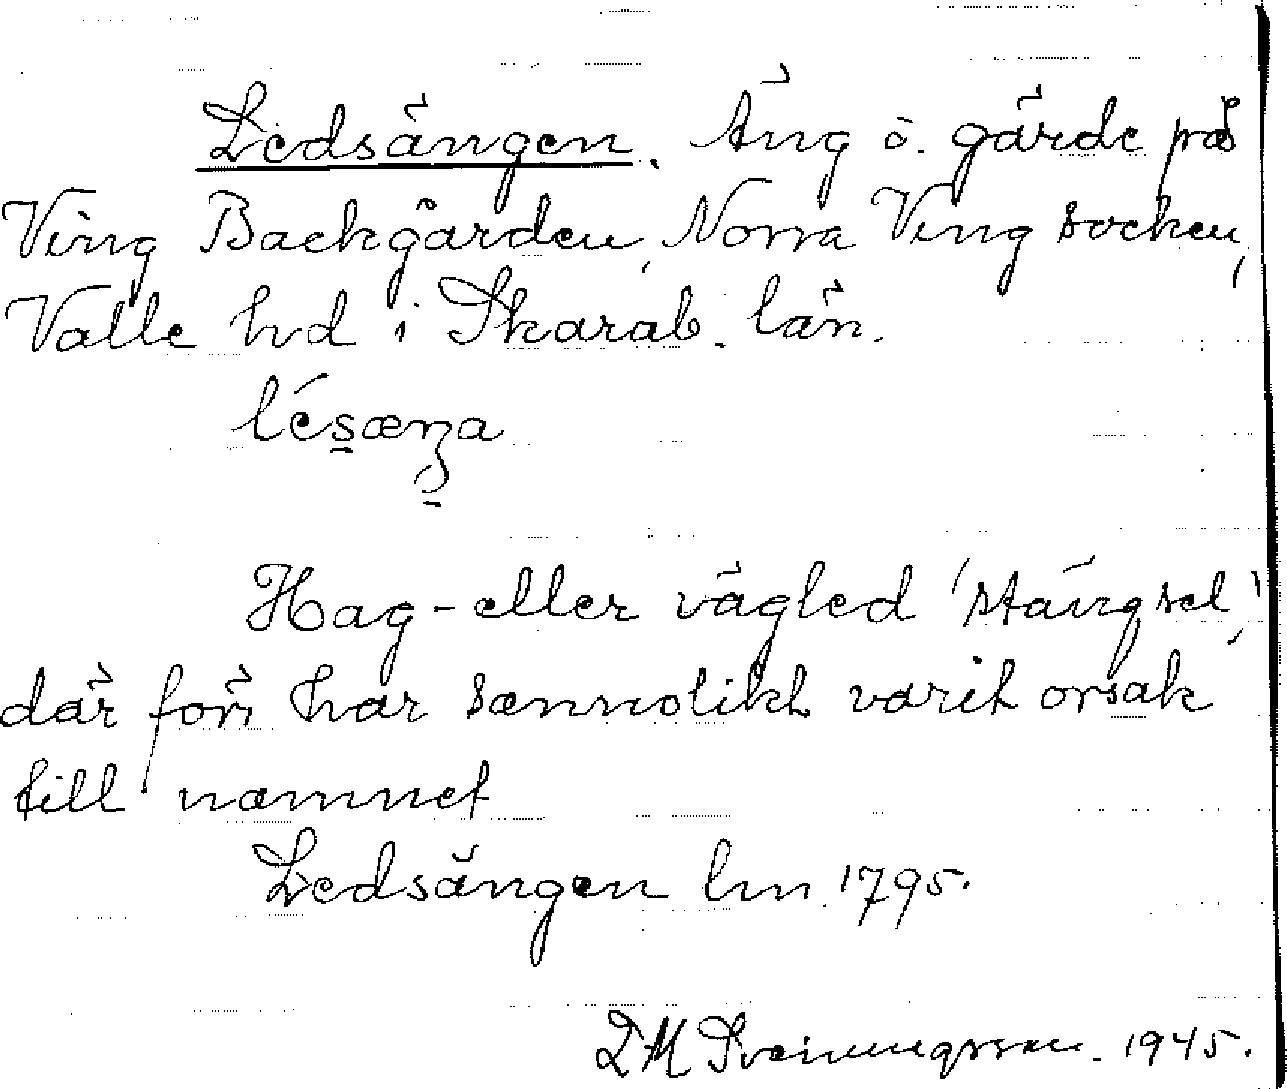 Ledsängen. Äng o. gärde på
Ving Backgården, Norra Ving socken,
Valle hd i Skarab. län.
lésæŋa
Hag- eller vägled 'stängsel',
där förr har sannolikt varit orsak
till namnet
Ledsängen lm. 1795.
D M Sveinungsson. 1945.